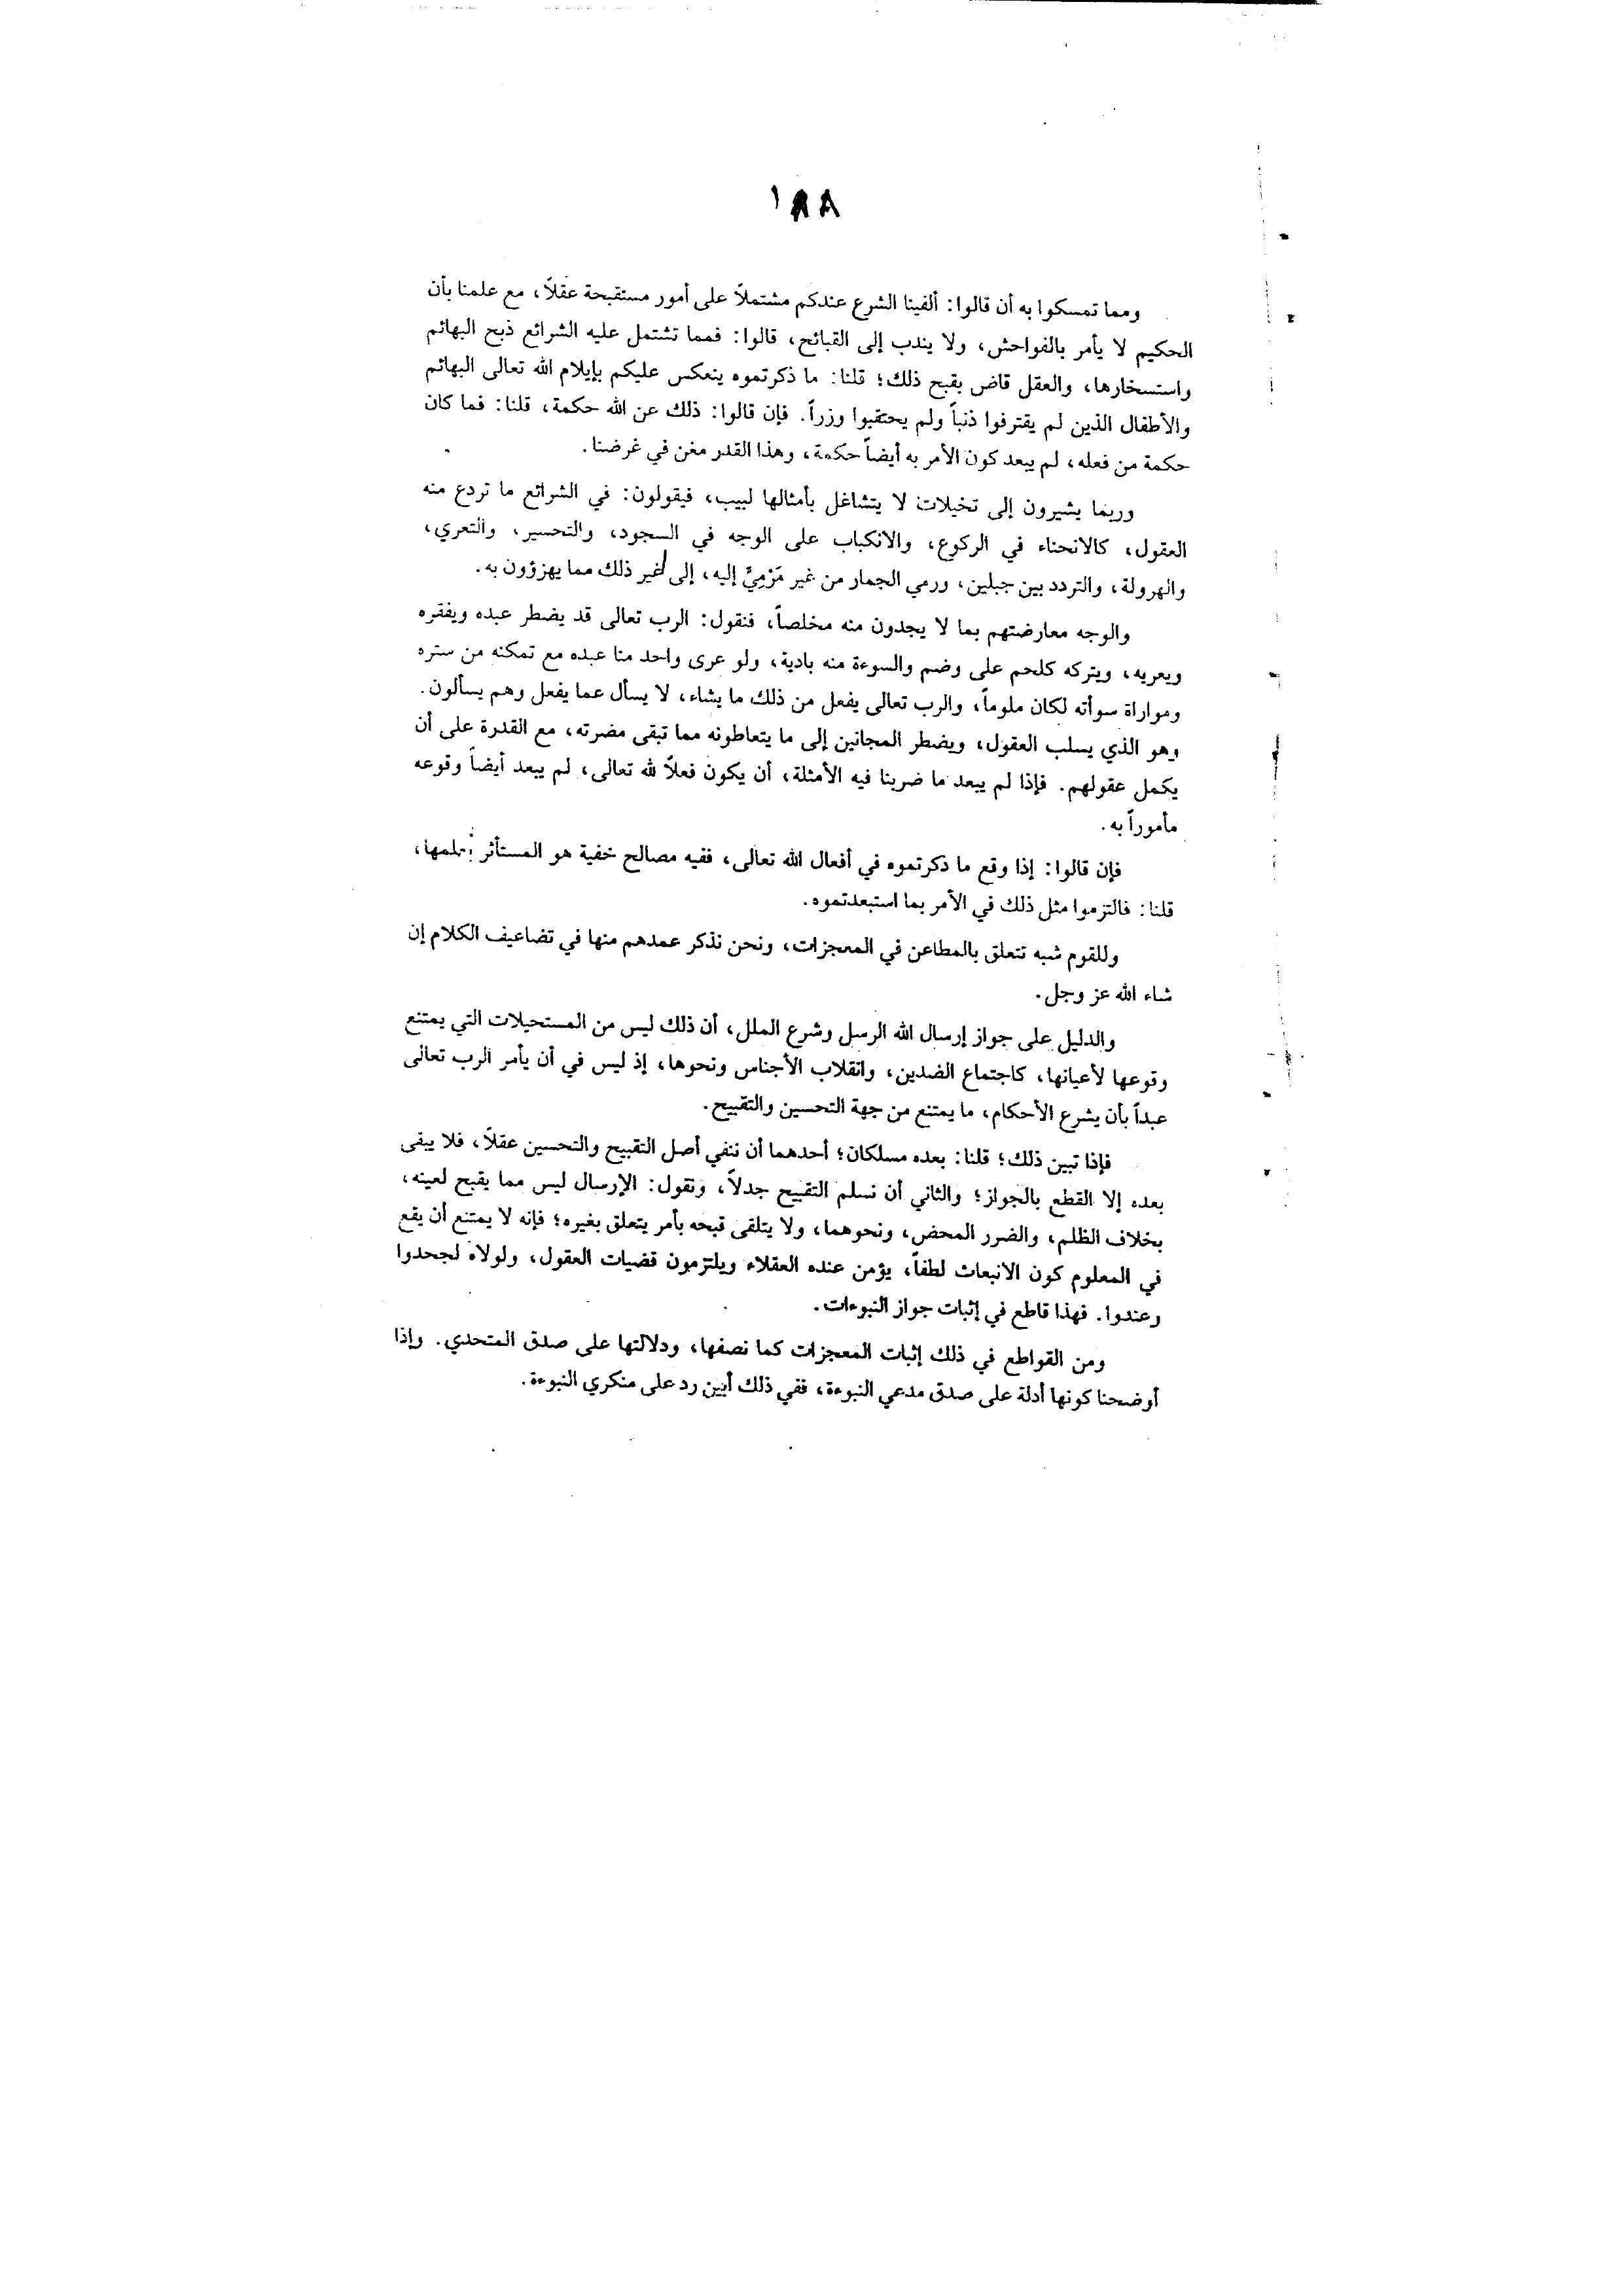 ١٨٨
ومما تمسكوا به أن قالوا: ألفينا الشرع عندكم مشتملاً على أمور مستقبحة عقلاً، مع علمنا بأن
الحكيم لا يأمر بالفواحش، ولا يندب إلى القبائح، قالوا: فمما تشتمل عليه الشرائع ذبح البهائم
واستسخارها، والعقل قاض بقبح ذلك؛ قلنا: ما ذكرتموه ينعكس عليكم بإيلام الله تعالى البهائم
والأطفال الذين لم يقترفوا ذنباً ولم يحتقبوا وزراً. فإن قالوا: ذلك عن الله حكمة، قلنا: فما كان
حكمة من فعله، لم يبعد كون الأمر به أيضاً حكمة، وهذا القدر مغن في غرضنا.
وربما يشيرون إلى تخيلات لا يتشاغل بأمثالها لبيب، فيقولون: في الشرائع ما تردع منه
العقول، كالانحناء في الركوع، والانكباب على الوجه في السجود، والتحسير، والتعري،
والهرولة، والتردد بين جبلين، ورمي الجمار من غير مَرْمِيٍّ إليه، إلى غير ذلك مما يهزؤون به.
والوجه معارضتهم بما لا يجدون منه مخلصاً، فنقول: الرب تعالى قد يضطر عبده ويفقره
ويعريه، ويتركه كلحم على وضم والسوءة منه بادية، ولو عرى واحد منا عبده مع تمكنه من ستره
ومواراة سوأته لكان ملوماً، والرب تعالى يفعل من ذلك ما يشاء، لا يسأل عما يفعل وهم يسألون.
وهو الذي يسلب العقول، ويضطر المجانين إلى ما يتعاطونه مما تبقى مضرته، مع القدرة على أن
يكمل عقولهم. فإذا لم يبعد ما ضربنا فيه الأمثلة، أن يكون فعلاً لله تعالى، لم يبعد أيضاً وقوعه
مأموراً به.
فإن قالوا: إذا وقع ما ذكرتموه في أفعال الله تعالى، ففيه مصالح خفية هو المستأثر بعلمها،
قلنا: فالتزموا مثل ذلك في الأمر بما استبعدتموه.
وللقوم شبه تتعلق بالمطاعن في المعجزات، ونحن نذكر عمدهم منها في تضاعيف الكلام إن
شاء الله عز وجل.
والدليل على جواز إرسال الله الرسل وشرع الملل، أن ذلك ليس من المستحيلات التي يمتنع
وقوعها لأعيانها، كاجتماع الضدين، وانقلاب الأجناس ونحوها، إذ ليس في أن يأمر الرب تعالى
عبداً بأن يشرع الأحكام، ما يمتنع من جهة التحسين والتقبيح.
فإذا تبين ذلك؛ قلنا: بعده مسلكان؛ أحدهما أن ننفي أصل التقبيح والتحسين عقلاً، فلا يبقى
بعده إلا القطع بالجواز؛ والثاني أن نسلم التقبيح جدلاً، ونقول: الإرسال ليس مما يقبح لعينه،
بخلاف الظلم، والضرر المحض، ونحوهما، ولا يتلقى قبحه بأمر يتعلق بغيره؛ فإنه لا يمتنع أن يقع
في المعلوم كون الانبعاث لطفاً، يؤمن عنده العقلاء ويلتزمون قضيات العقول، ولولاه لجحدوا
وعندوا. فهذا قاطع في إثبات جواز النبوءات.
ومن القواطع في ذلك إثبات المعجزات كما نصفها، ودلالتها على صدق المتحدي. وإذا
أوضحنا كونها أدلة على صدق مدعي النبوءة، ففي ذلك أبين رد على منكري النبوءة.